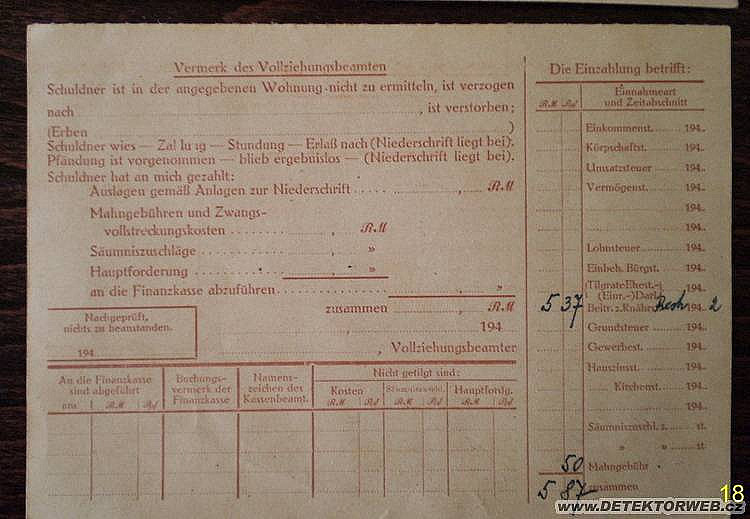 Vermerk des Vollziehungsbeamten
Schuldner ist in der angegebenen Wohnung nicht zu ermitteln, ist verzogen
nach , ist verstorben;
(Erben )
Schuldner wies — Zal lu ig — Stundung — Erlaß nach (Niederschrift liegt bei).
Pfändung ist vorgenommen — blieb ergebnislos — (Niederschrift liegt bei).
Schuldner hat an mich gezahlt:
Auslagen gemäß Anlagen zur Niederschrift RM
Mahngebühren und Zwangs-
vollstreckungskosten RM
Säumniszuschläge "
Hauptforderung "
an die Finanzkasse abzuführen "
zusammen RM
Nachgeprüft,
nichts zu beanstanden.
194
194
, Vollziehungsbeamter
An die Finanzkasse
sind abgeführt
am RM Rpf
Buchungs-
vermerk der
Finanzkasse
Namens-
zeichen des
Kassenbeamt.
Nicht getilgt sind:
Kosten
RM Rpf
RM Rpf
Hauptfordg.
RM Rpf
Die Einzahlung betrifft:
RM Rpf
Einnahmeart
und Zeitabschnitt
Einkommenst. 194..
Körpschaftst. 194..
Umsatzsteuer 194..
Vermögenst. 194..
194..
194..
Lohnsteuer 194..
Einbeh. Bürgst. 194..
(TilgrateEhest.-)
(Einr.-)Darl. 194..
5 37 Beitr. z. 194 2
Grundsteuer 194..
Gewerbest. 194..
Hauszinsst. 194..
Kirchenst. 194..
194..
Säumniszuschl. z. st.
" " st
50 Mahngebühr
5 87 zusammen
18
www.DETEKTORWEB.cz